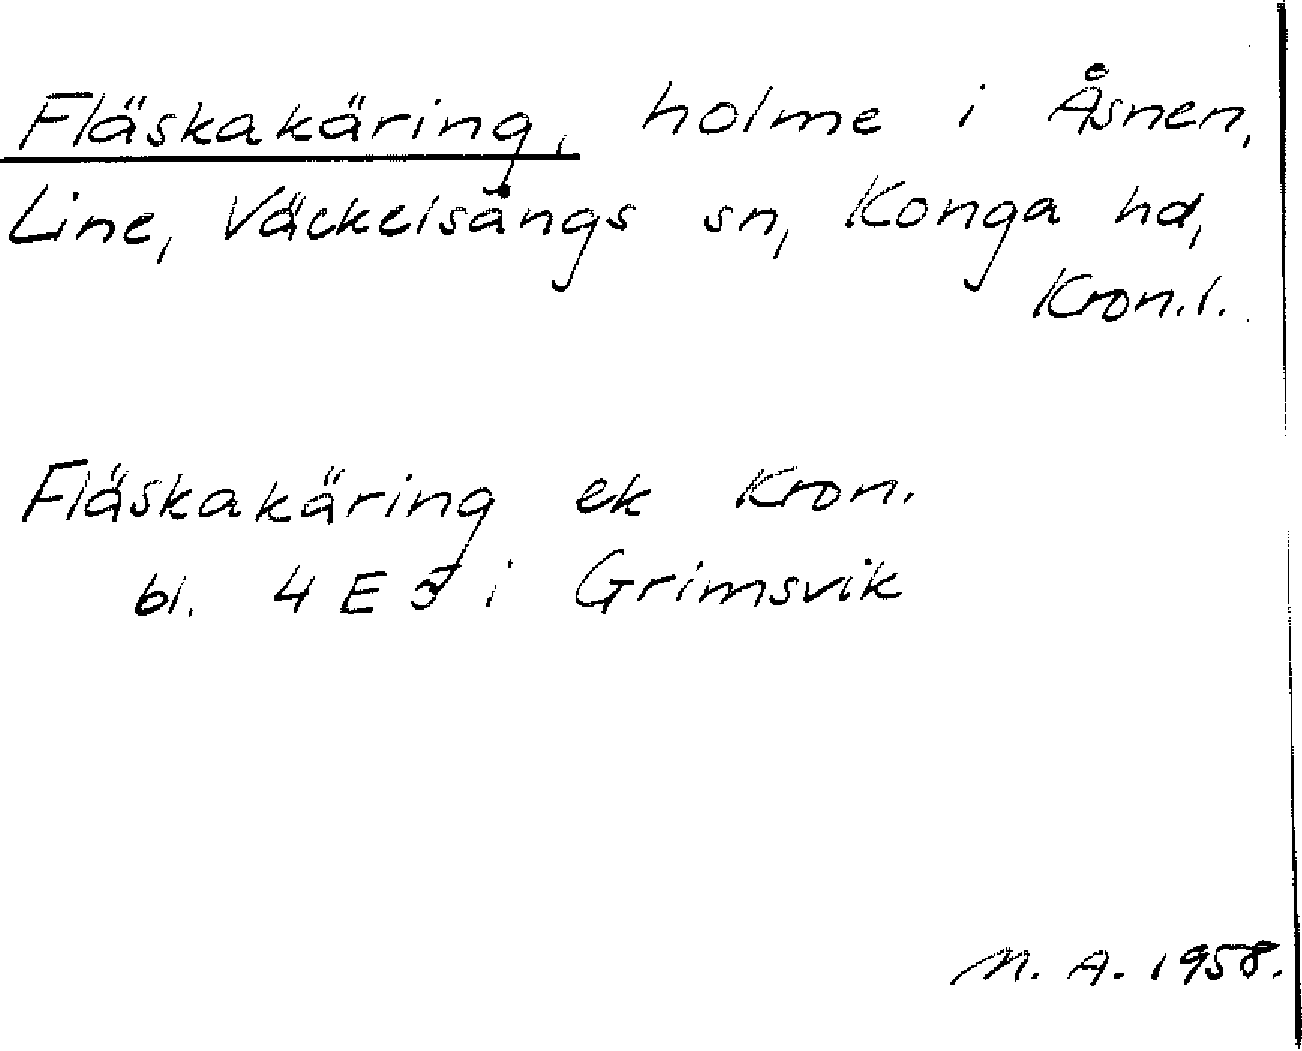 Fläskakäring, holme i Åsnen,
Line, Väckelsångs sn, Konga hd,
Kron.l.
Fläskakäring ek Kron.
bl. 4 E 5 i Grimsvik
M. A. 1958.